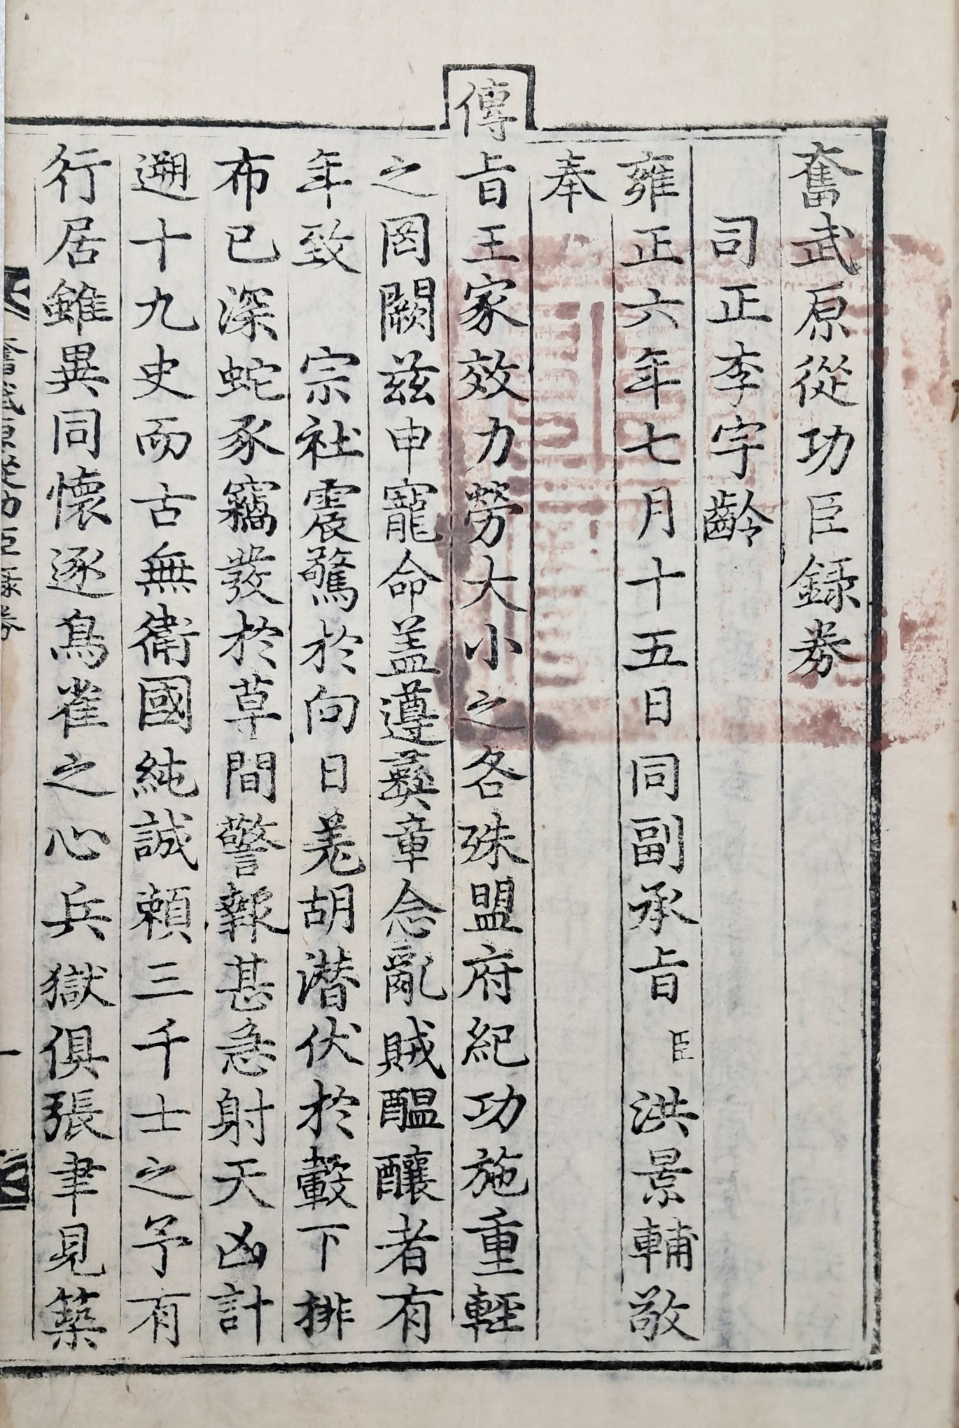 奮武原從功臣錄券
司正李宇齡
雍正六年七月十五日同副承旨臣洪景輔敬
奉
傳旨王家效力勞大小之各殊盟府紀功施重輕
之罔闕茲申寵命盖遵彝章念亂賊醞釀者有
年致宗社震驚於向日羗胡潜伏於轂下排
布已深蛇豕竊發於草間警報甚急射天凶計
遡十九史而古無衛國純誠賴三千士之予有
行居雖異同懷逐鳥雀之心兵獄俱張聿見築
奮武原從功臣錄券
一